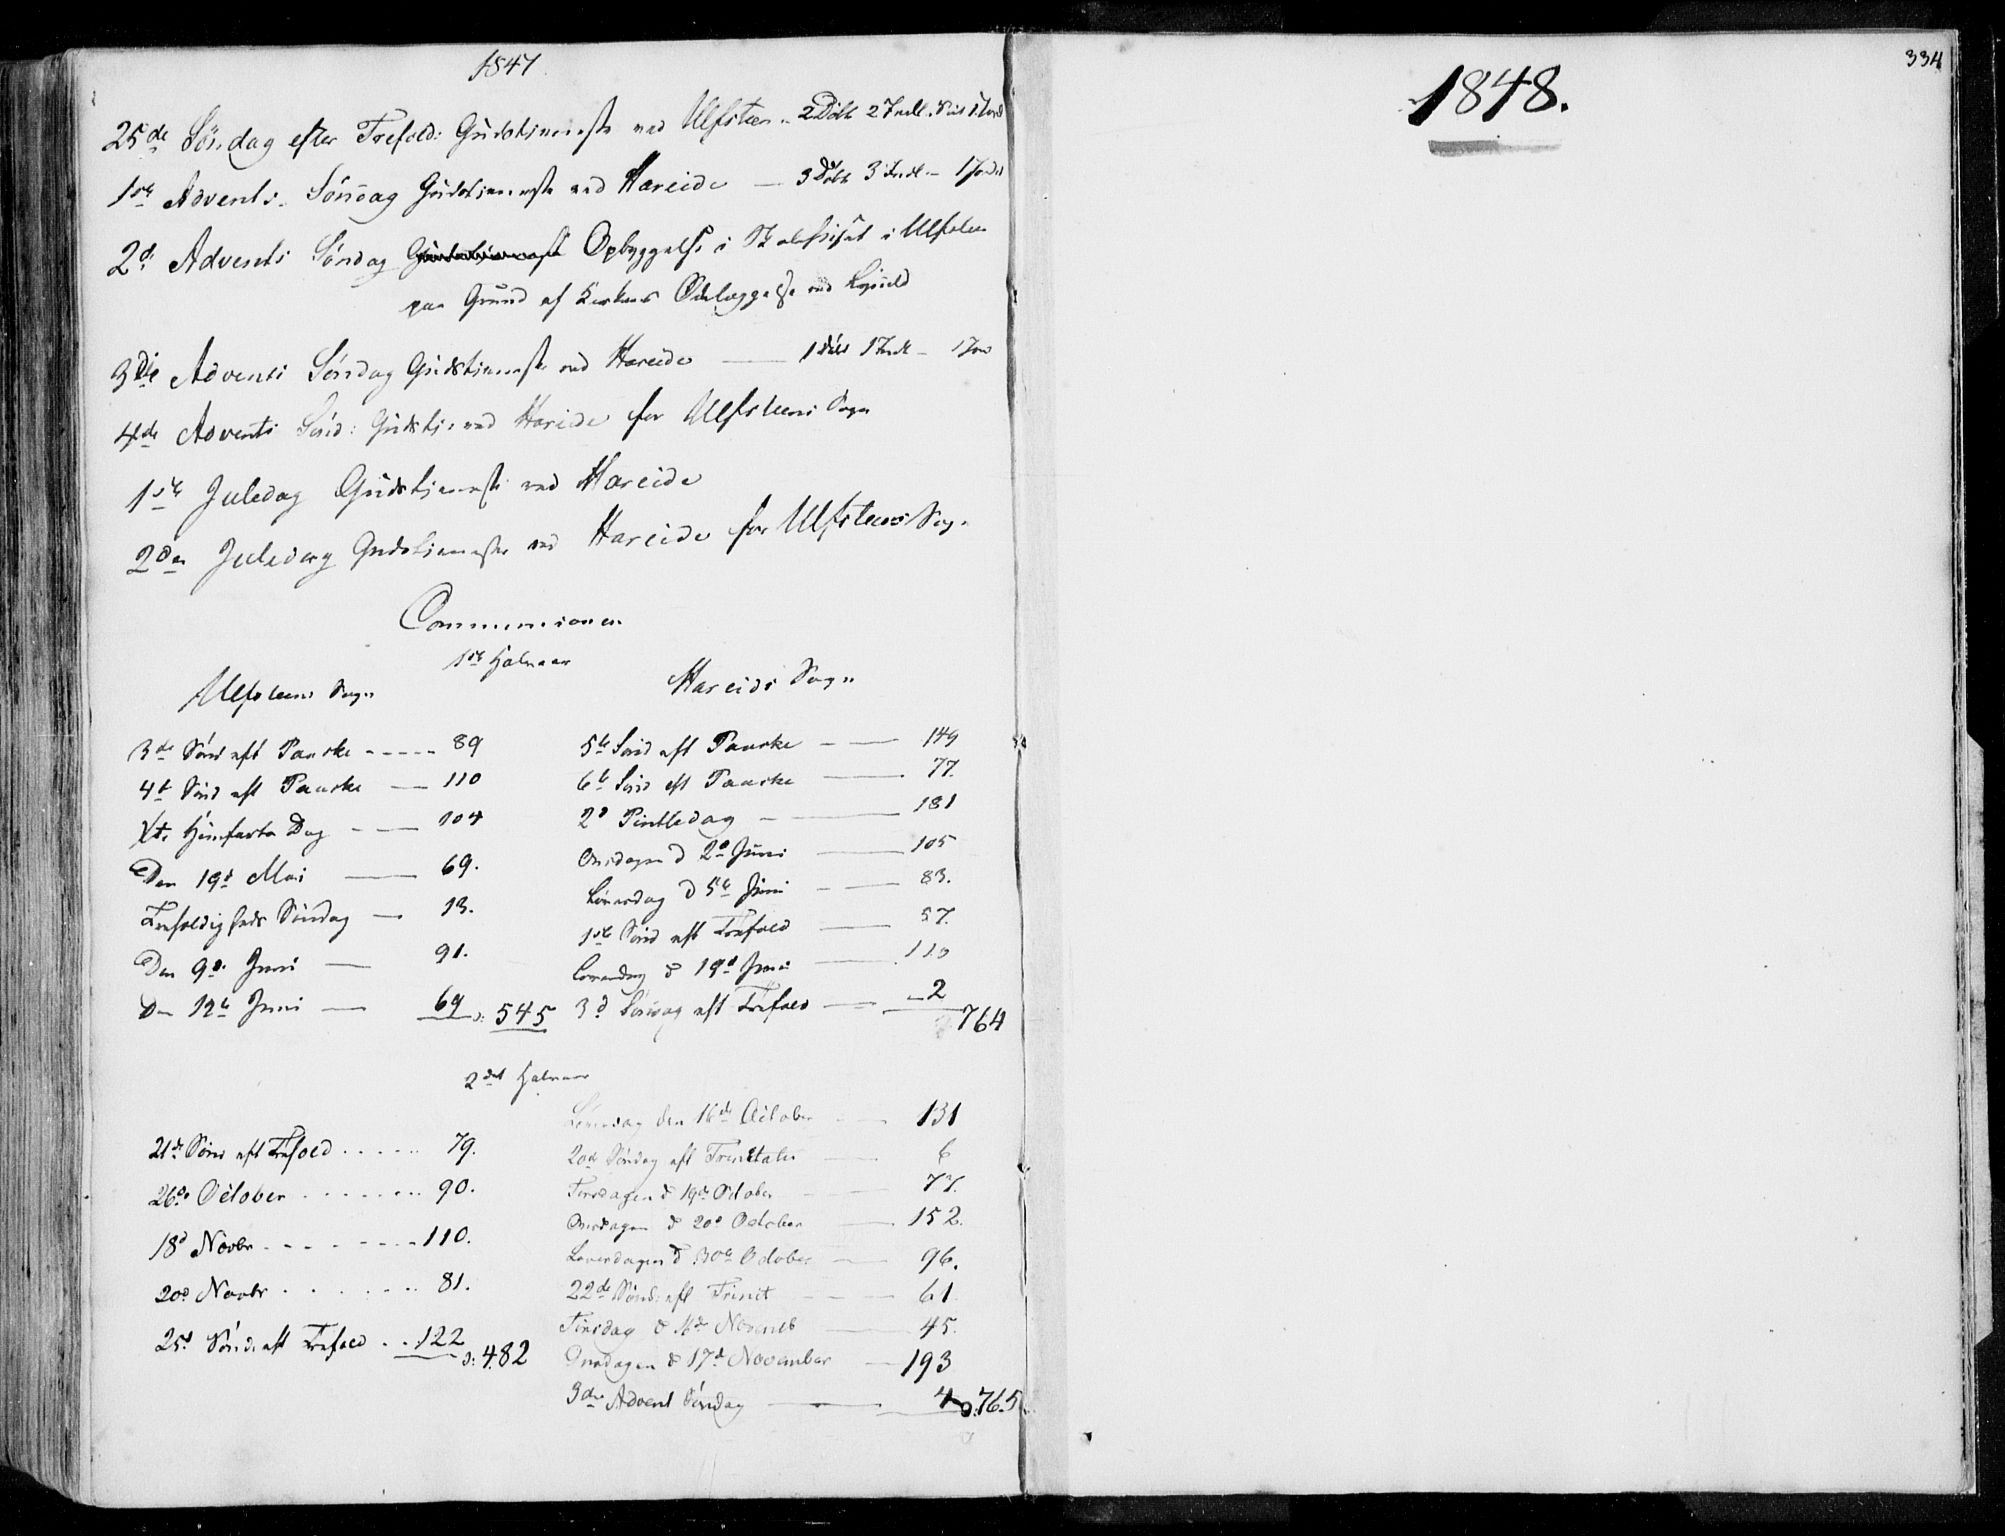 1847
25de Söndag efter Trefold: Gudstjeneste ved Ulfsteen - 2 Döbte 2 Indl.
1ste Advents Söndag Gudstjeneste ved Hareide — 3 Döbte 3 Indl - 1 Jordf
2d Advents Söndag Gudstjeneste Opbyggelse i Ulfsteen
paa Grund af Kirkens Ødelæggelse ved Lynild
3die Advents Söndag Gudstjeneste ved Hareide — 1 Döbt 1 Indl - 1 Jor
4de Advents Sönd: Gudstj: ved Hareide for Ulfsteens Sogn
1ste Juledag Gudstjeneste ved Hareide
2den Juledag Gudstjeneste ved Hareide for Ulfsteens Sogn
Communionen
1ste Halvaar
Ulfsteens Sogn
3de Sönd eft Paaske ----- 89
4de Sönd eft Paaske — 110
Xti Himfarts Dag - — 104
Den 19d Mai — 69.
Trefoldigheds Söndag — 13.
Den 9d Juni — 91.
D 12te Juni — 69 : 545
Hareids Sogn
5te Sönd eft Paaske - — 149
6te Sönd eft Paaske — 77.
2d Pintsedag - — 181
Onsdagen d 2d Juni — 105
Löverdag d 5te Juni - — 83.
1ste Sönd eft Trefold — 57.
Löverdag d 19d Juni — 110
3d Söndag eft Trefold — 2
764
2det Halvaar
21de Sönd eft Trefold ...... 79.
26de October ....... 90.
18d Novbr ------- 110.
20d Novbr ....... 81.
25d Sönd. eft Trefold .. 122 : 482
Löverdag den 16de October — 131
20d Söndag eft Trinitatis — 6
Tirsdagen d 19de October — 77.
Onsdagen d 20d October — 152.
Löverdagen d 30te October — 96.
22de Sönd: eft Trinit - — 61.
Tirsdag d 16de Novemb — 45.
Onsdagen d 17d November — 193
3die Advent Söndag — 4 : 765
1848.
334